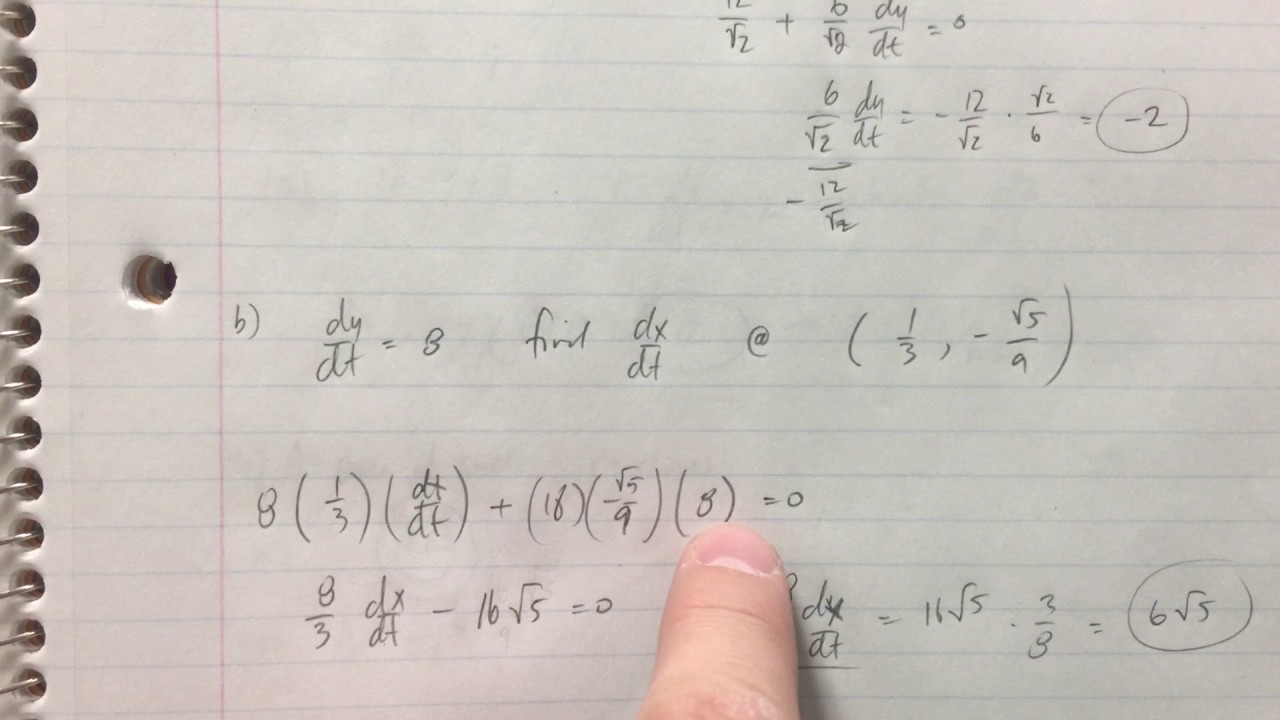 12/√2 + 6/√2 dy/dt = 0
6/√2 dy/dt = - 12/√2 · √2/6 = -2
- 12/√2
b) dy/dt = 8 find dx/dt @ ( 1/3 , - √5/9 )
8 ( 1/3 ) ( dt/dt ) + (18) ( -√5/9 ) ( 8 ) = 0
8/3 dx/dt - 16√5 = 0
dx/dt = 16√5 · 3/8 = 6√5